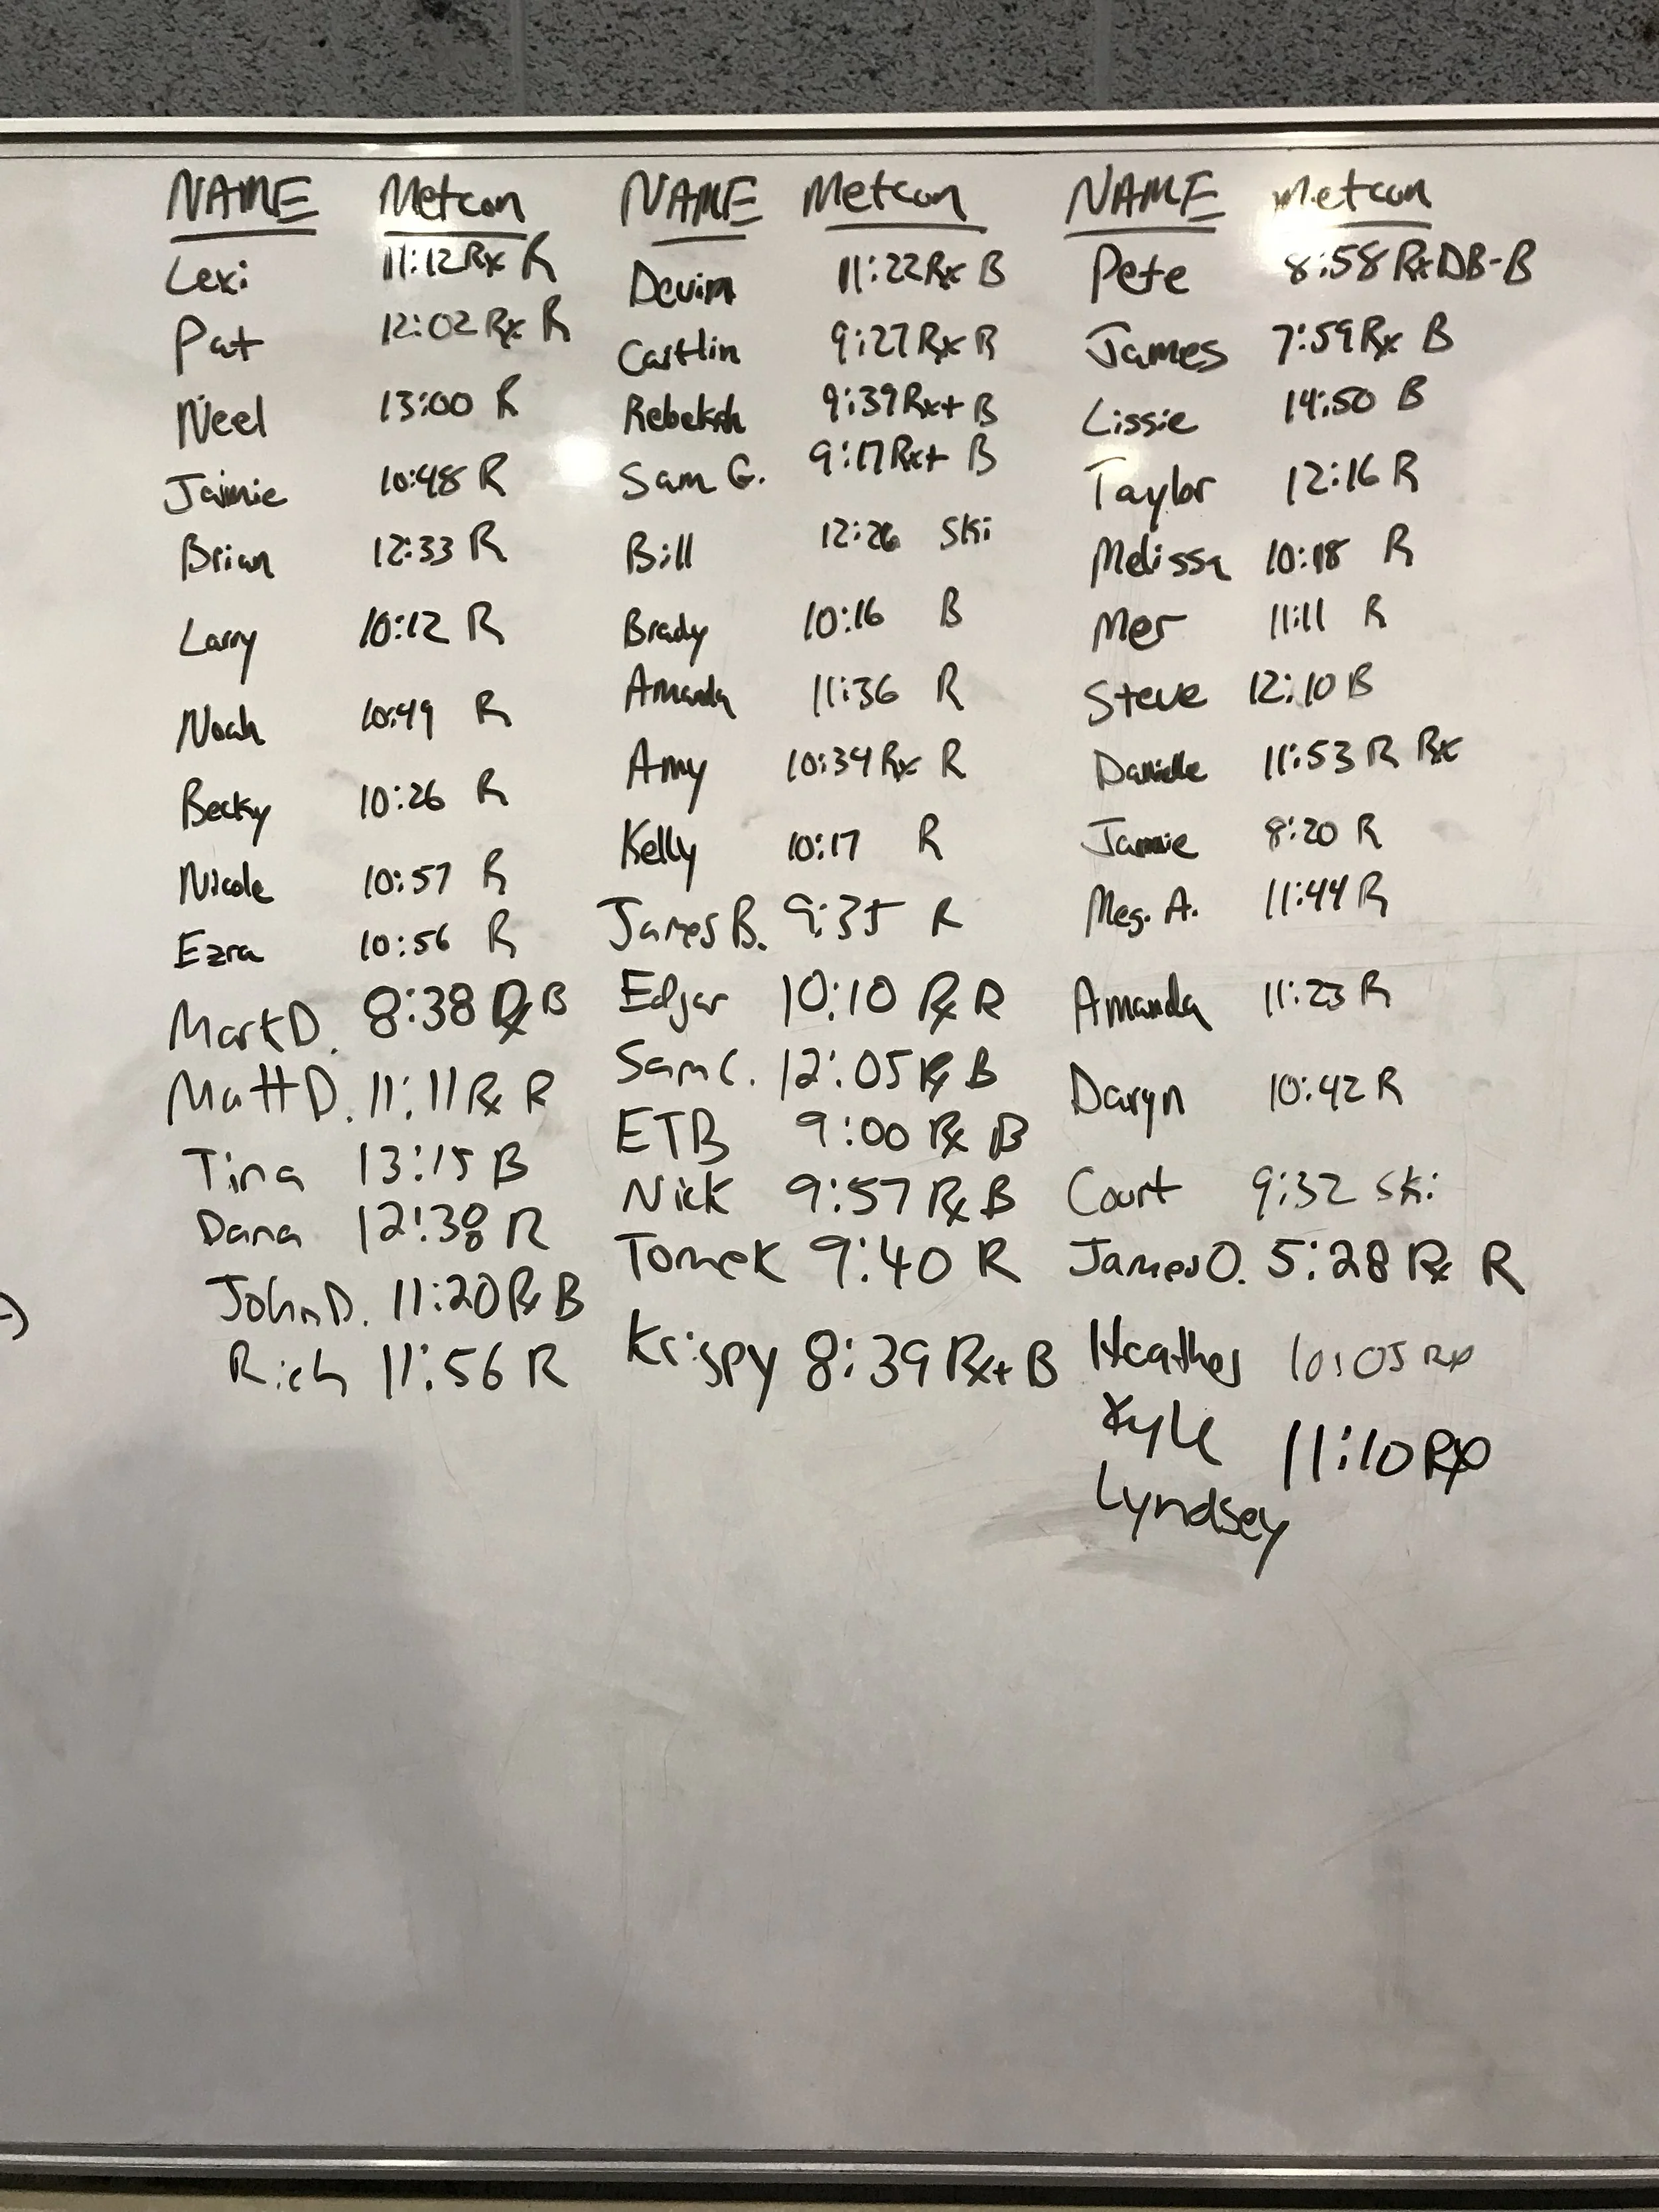 NAME Metcon
Lexi 11:12 Rx R
Pat 12:02 Rx R
Neel 13:00 R
Jaimie 10:48 R
Brian 12:33 R
Larry 10:12 R
Noah 10:49 R
Becky 10:26 R
Nicole 10:57 R
Ezra 10:56 R
Mark D. 8:38 Rx B
Matt D. 11:11 Rx R
Tina 13:15 B
Dana 12:38 R
John D. 11:20 Rx B
Rich 11:56 R
NAME Metcon
Devin 11:22 Rx B
Caitlin 9:27 Rx R
Rebekah 9:39 Rx+ B
Sam G. 9:17 Rx+ B
Bill 12:26 Ski
Brady 10:16 B
Amanda 11:36 R
Amy 10:34 Rx R
Kelly 10:17 R
James B. 9:35 R
Edgar 10:10 Rx R
Sam C. 12:05 Rx B
ETB 9:00 Rx B
Nick 9:57 Rx B
Tomek 9:40 R
Krispy 8:39 Rx+ B
NAME Metcon
Pete 8:58 Rx DB-B
James 7:59 Rx B
Lissie 14:50 B
Taylor 12:16 R
Melissa 10:18 R
Mer 11:11 R
Steve 12:10 B
Danielle 11:53 R Rx
Jamie 8:20 R
Meg. A. 11:44 R
Amanda 11:23 R
Daryn 10:42 R
Court 9:32 Ski
James O. 5:28 Rx R
Heather 10:05 Rx
Kyle 11:10 Rx
Lyndsey